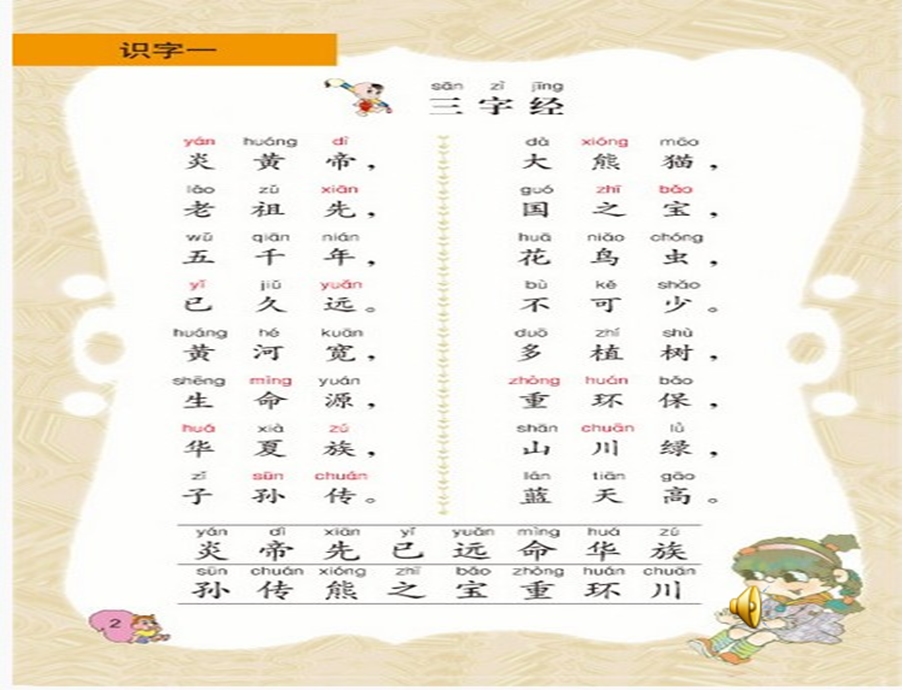 识字一
sān zì jīng
三字经
yán huáng dì
炎黄帝，
lǎo zǔ xiān
老祖先，
wǔ qiān nián
五千年，
yǐ jiǔ yuǎn
已久远。
huáng hé kuān
黄河宽，
shēng mìng yuán
生命源，
huá xià zú
华夏族，
zǐ sūn chuán
子孙传。
dà xióng māo
大熊猫，
guó zhī bǎo
国之宝，
huā niǎo chóng
花鸟虫，
bù kě shǎo
不可少。
duō zhí shù
多植树，
zhòng huán bǎo
重环保，
shān chuān lǜ
山川绿，
lán tiān gāo
蓝天高。
yán dì xiān yǐ yuǎn mìng huá zú
炎帝先已远命华族
sūn chuán xióng zhī bǎo zhòng huán chuān
孙传熊之宝重环川
2